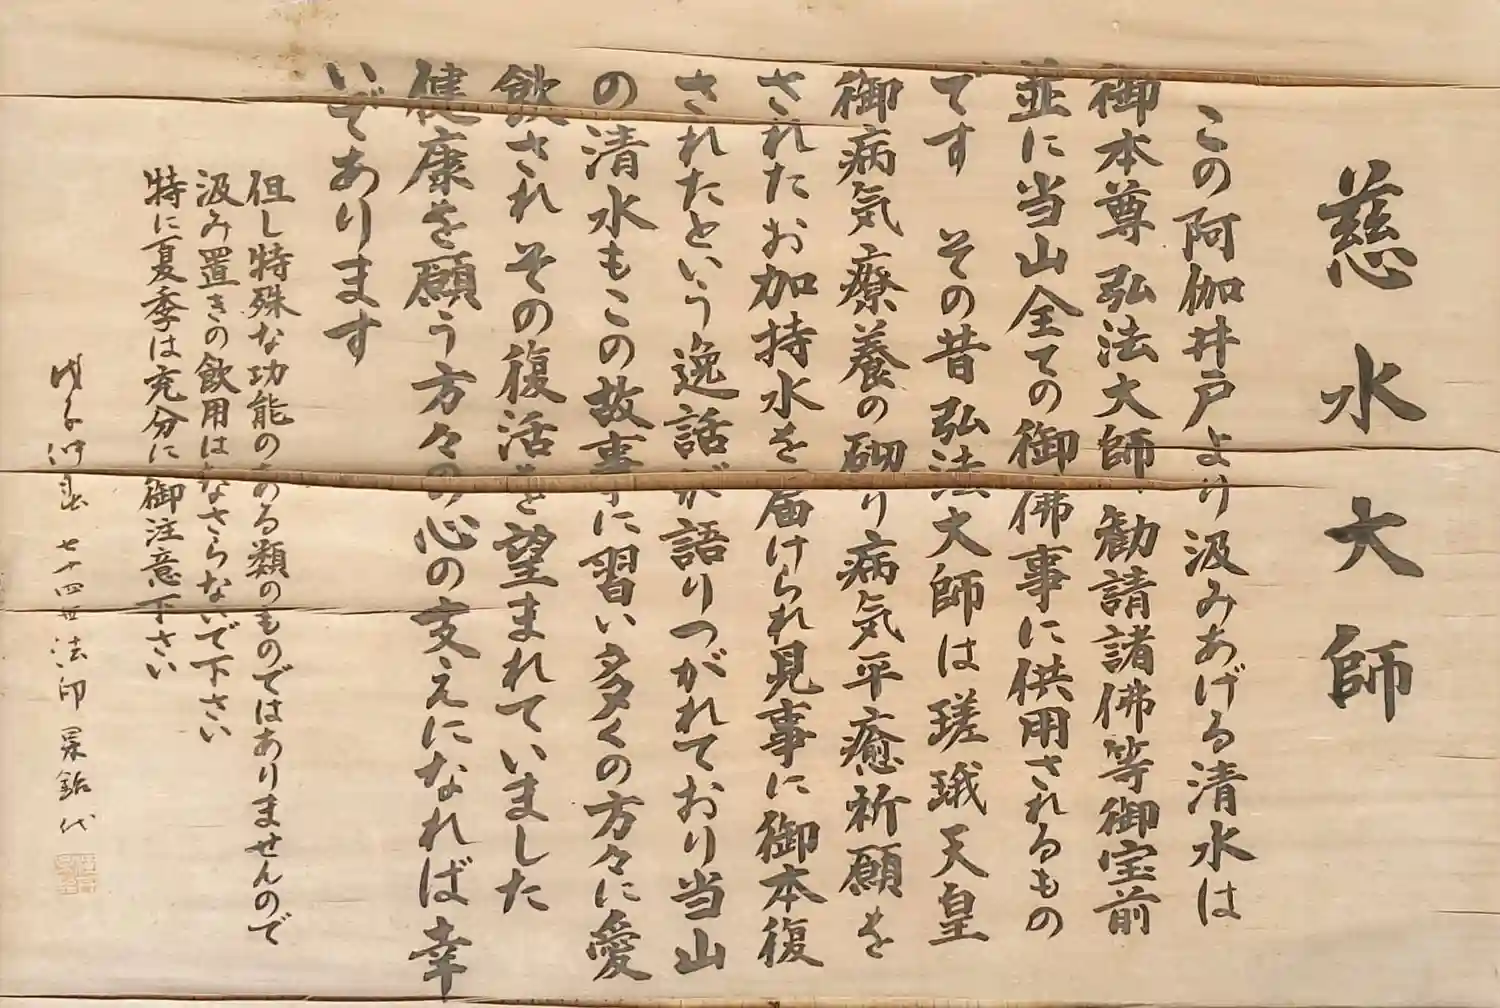 慈水大師
この阿伽井戸より汲みあげる清水は
御本尊弘法大師勧請諸佛等御宝前
並に当山全ての御佛事に供用されるもの
です その昔弘法大師は瑳珴天皇
御病気療養の砌り病気平癒祈願を
されたお加持水を届けられ見事に御本復
されたという逸話が語りつがれており当山
の清水もこの故事に習い多くの方々に愛
飲され その復活を望まれていました
健康を願う方々の心の支えになれば幸
いであります
但し特殊な功能のある類のものではありませんので
汲み置きの飲用はなさらないで下さい
特に夏季は充分に御注意下さい
七十四世法印 代